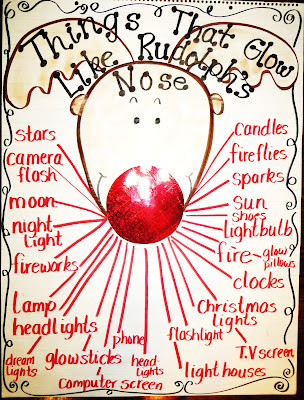 Things That Glow
Like Rudolph's
Nose
stars
camera
flash
moon
night
light
fireworks
lamp
headlights
dream
lights
glowsticks
computer screen
phone
head-
lights
flashlight
light houses
T.V screen
Christmas
lights
clocks
fire-
glow
pillows
lightbulb
shoes
sun
sparks
fireflies
candles